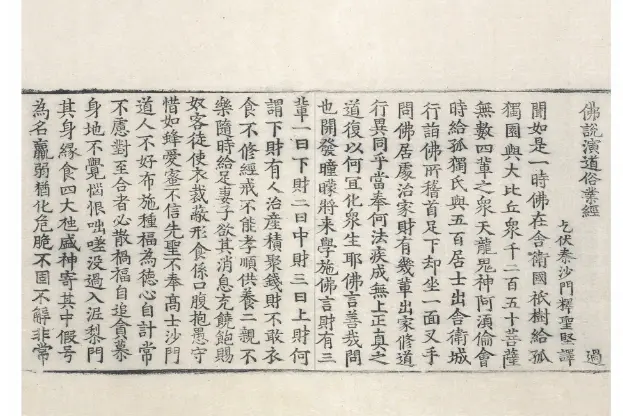 佛說演道俗業經
乞伏秦沙門釋聖堅譯 過
聞如是一時佛在舍衛國祇樹給孤
獨園與大比丘衆千二百五十菩薩
無數四輩之衆天龍鬼神阿須倫會
時給孤獨氏與五百居士出舍衛城
行詣佛所稽首足下却坐一面叉手
問佛居處治家財有幾輩出家修道
行異同乎當奉何法疾成無上正真之
道復以何宜化衆生耶佛言善哉問
也開發曈曚將来學施佛言財有三
輩一曰下財二曰中財三曰上財何
謂下財有人治產積聚錢財不敢衣
食不修經戒不能孝順供養二親不
樂隨時給足妻子欲其消息充饒飽賜
奴客徒使衣裁蔽形食係口腹抱愚守
惜如蜂愛蜜不信先聖不奉髙士沙門
道人不好布施種福為德心自計常
不慮對至合者必散禍福自追貪慕
身地不覺惱恨咄嗟没過入涅梨門
其身緣食四大衰神寄其中假号
為名羸弱猶化危脆不固不解非常